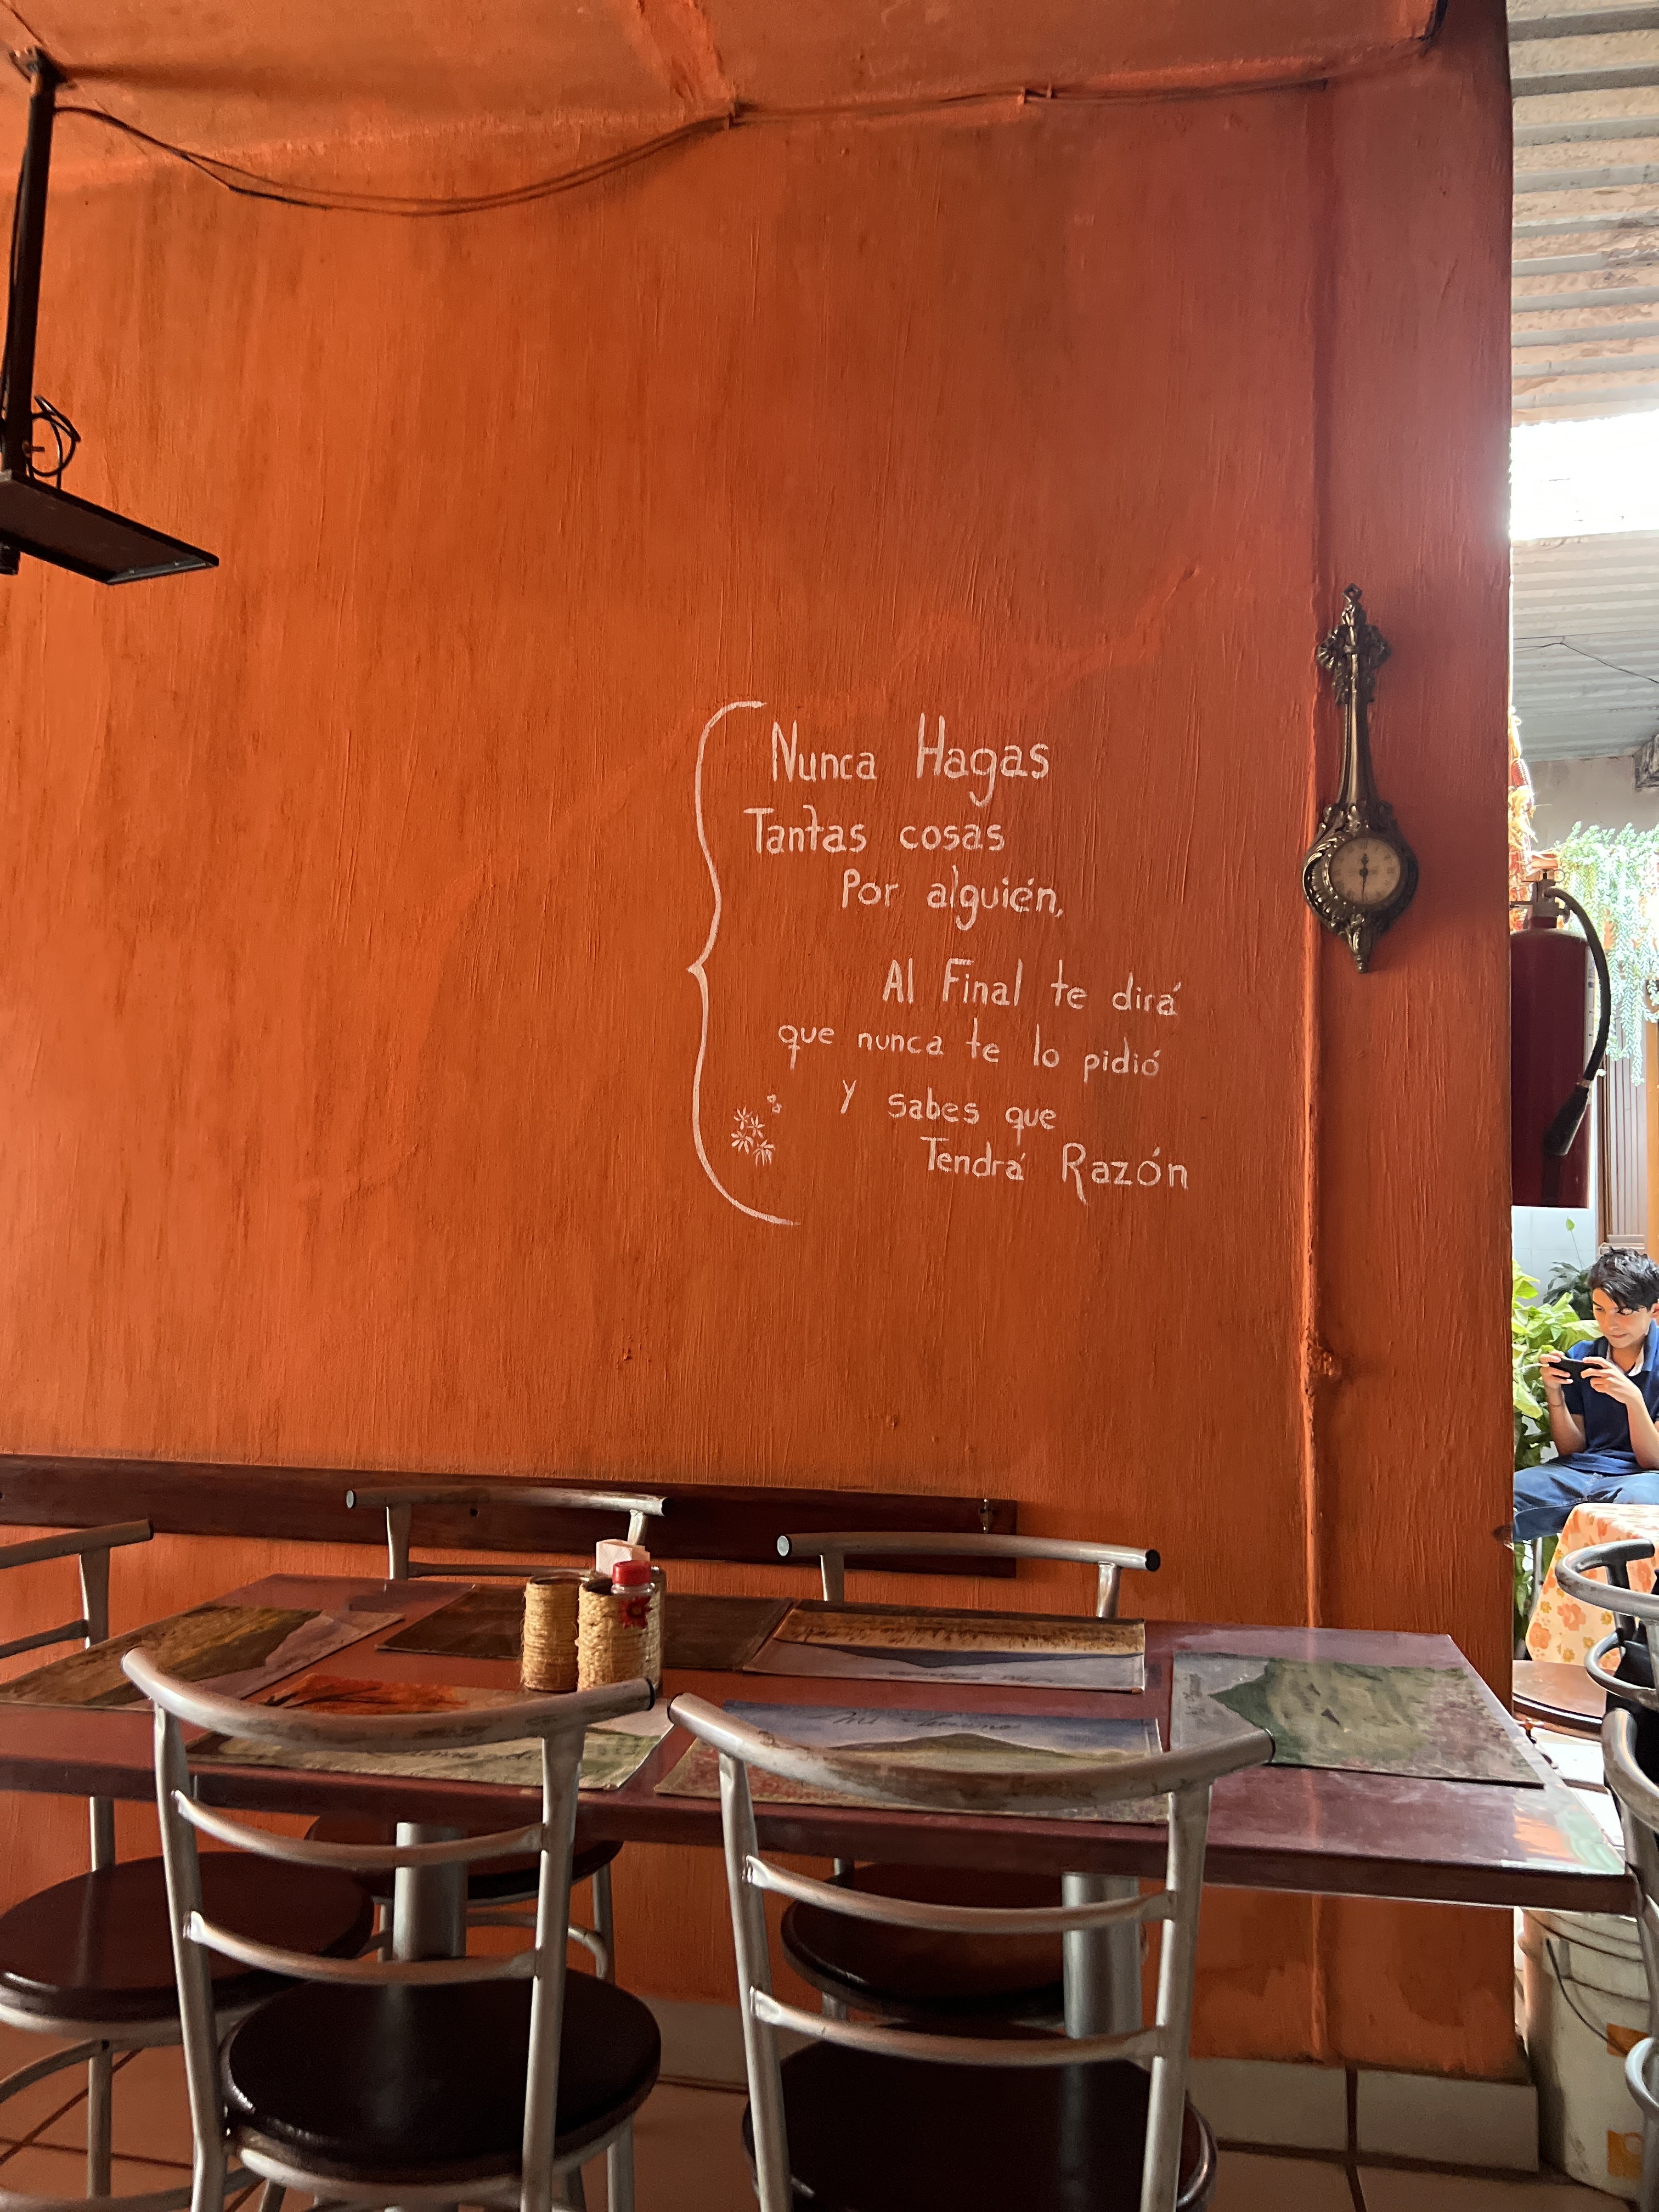 Nunca Hagas
Tantas cosas
Por alguién,
Al Final te dirá
que nunca te lo pidió
y sabes que
Tendrá Razón